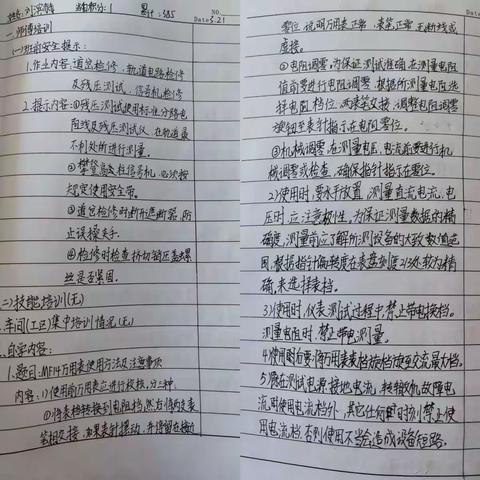 姓名: 当前积分:1 累计:585
NO.
Date 3.21
一 班博培训
(一)班前安全提示:
1.作业内容:道岔检修、轨道电路检修
及残压测试、信号机检修
2.提示内容:①残压测试使用标准分路电
阻线及残压测试仪,在轨道最
不利处所进行测量。
②攀登高柱信号机,必须按
规定使用安全带。
③道岔检修时断开遮断器,防
止误操夹手。
④检修时检查折切销压盖螺
丝是否紧固。
二)技能培训(无)
车间(工区)集中培训情况(无)
自学内容:
1.题目:MF14万用表使用方法及注意事项
内容:1)使用前万用表应进行校核,分三种
①将表档转换到电阻档,然后将两支表
笔相交接,如果表针摆动,并停留在接近
NO.
Date
零位,说明万用表正常,表笔正常,无断线或
虚接。
②电阻调零,为保证测试准确,在测量电阻
值前要进行电阻调零,根据所测量电阻选
择电阻档位,两表笔交接,调整电阻调零
旋钮至表针指示在电阻零位。
③机械调零,在测量电压、电流前要进行机
械调零或检查,确保指针指示在零位。
2)使用时,要水平放置,测量直流电流、电
压时,应注意极性,为保证测量数据的精
确度,测量前应了解所测设备的大致数值范
围,根据指针偏转度在表盘刻度2/3处较为精
确,来选择表档。
3)使用时,仪表测试过程中禁止带电换档。
测量电阻时,禁止带电测量。
4.使用时后要将万用表表档旋档旋至交流最大档。
5.除在测试电源接地电流、转辙机故障电
流时使用电流档外,其它任何时刻禁止使
用电流档,否则使用不当会造成设备短路。